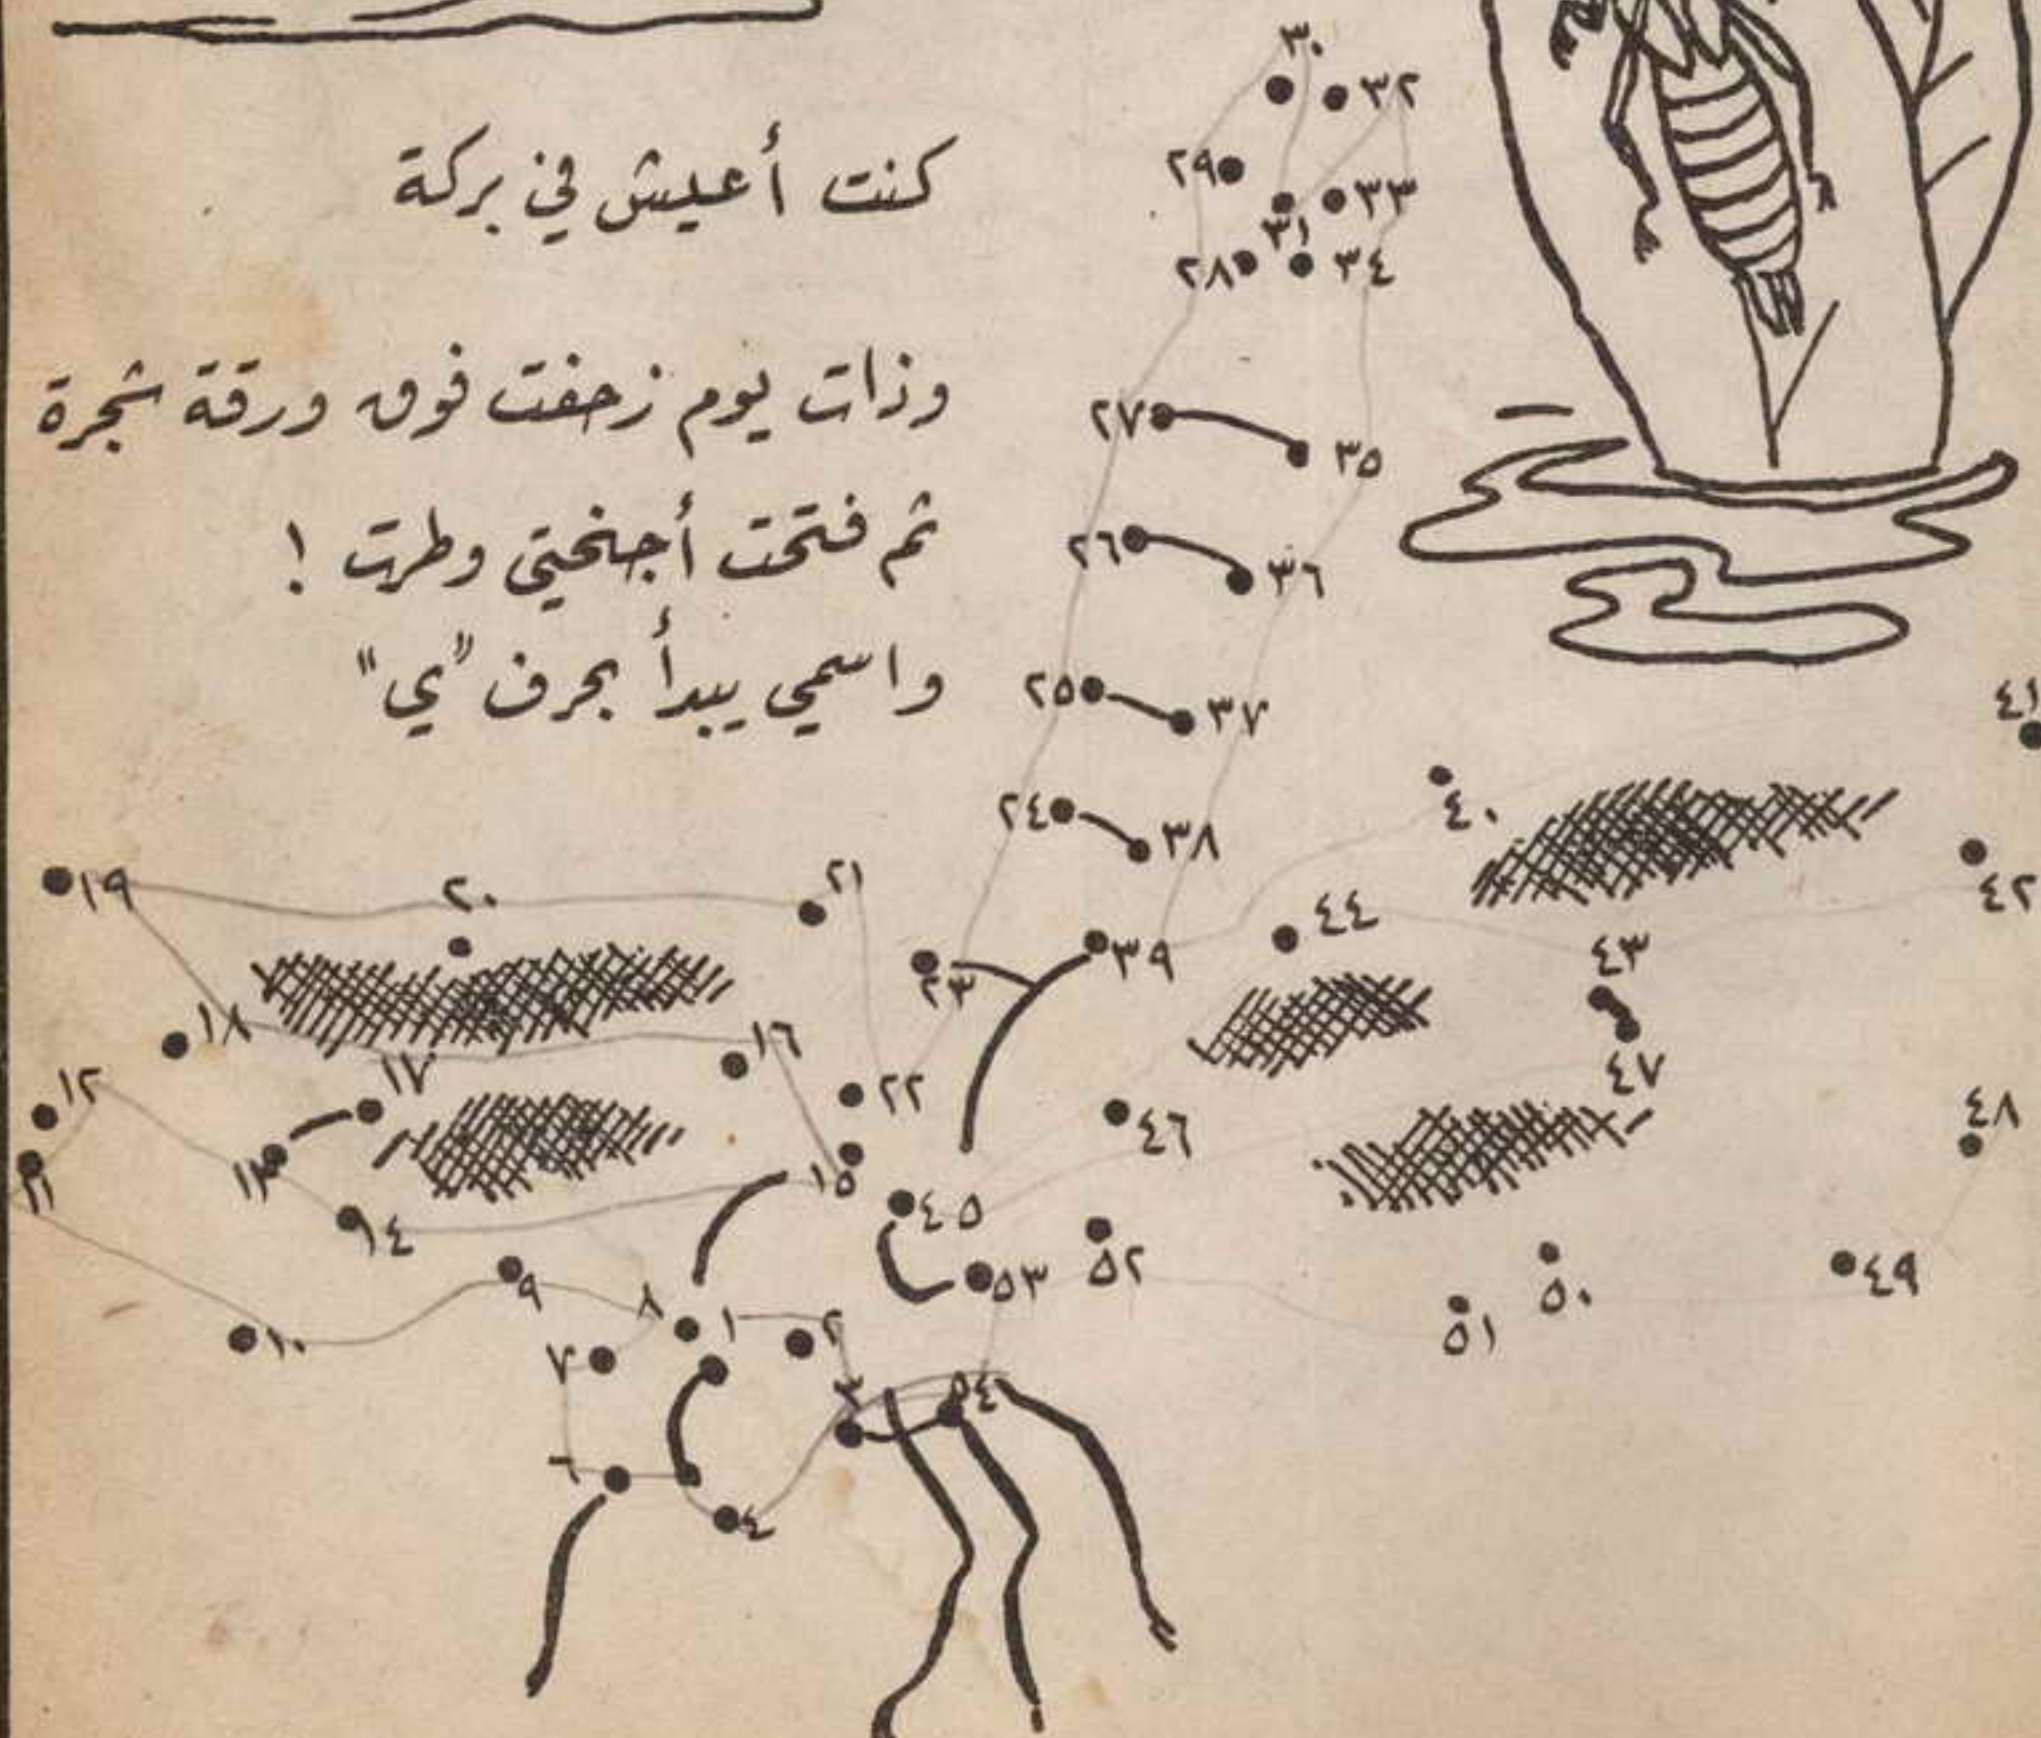 كنت أعيش في بركة
وذات يوم زحفت فوق ورقة شجرة
ثم فتحت أجنحتي وطرت !
واسمي يبدأ بحرف "ي"
٣٠
٣٢
٢٩
٣٣
٣١
٢٨
٣٤
٢٧
٣٥
٢٦
٣٦
٢٥
٣٧
٤١
٢٤
٣٨
٤٠
١٩
٢٠
٢١
٤٢
٢٣
٣٩
٤٤
٤٣
١٨
١٧
١٦
٢٢
٤٧
١٢
٤٦
٤٨
١١
١٣
١٤
١٥
٤٥
٩
٨
١
٢
٥٣
٥٢
٥٠
٤٩
١٠
٧
٥١
٣
٥٤
٦
٤